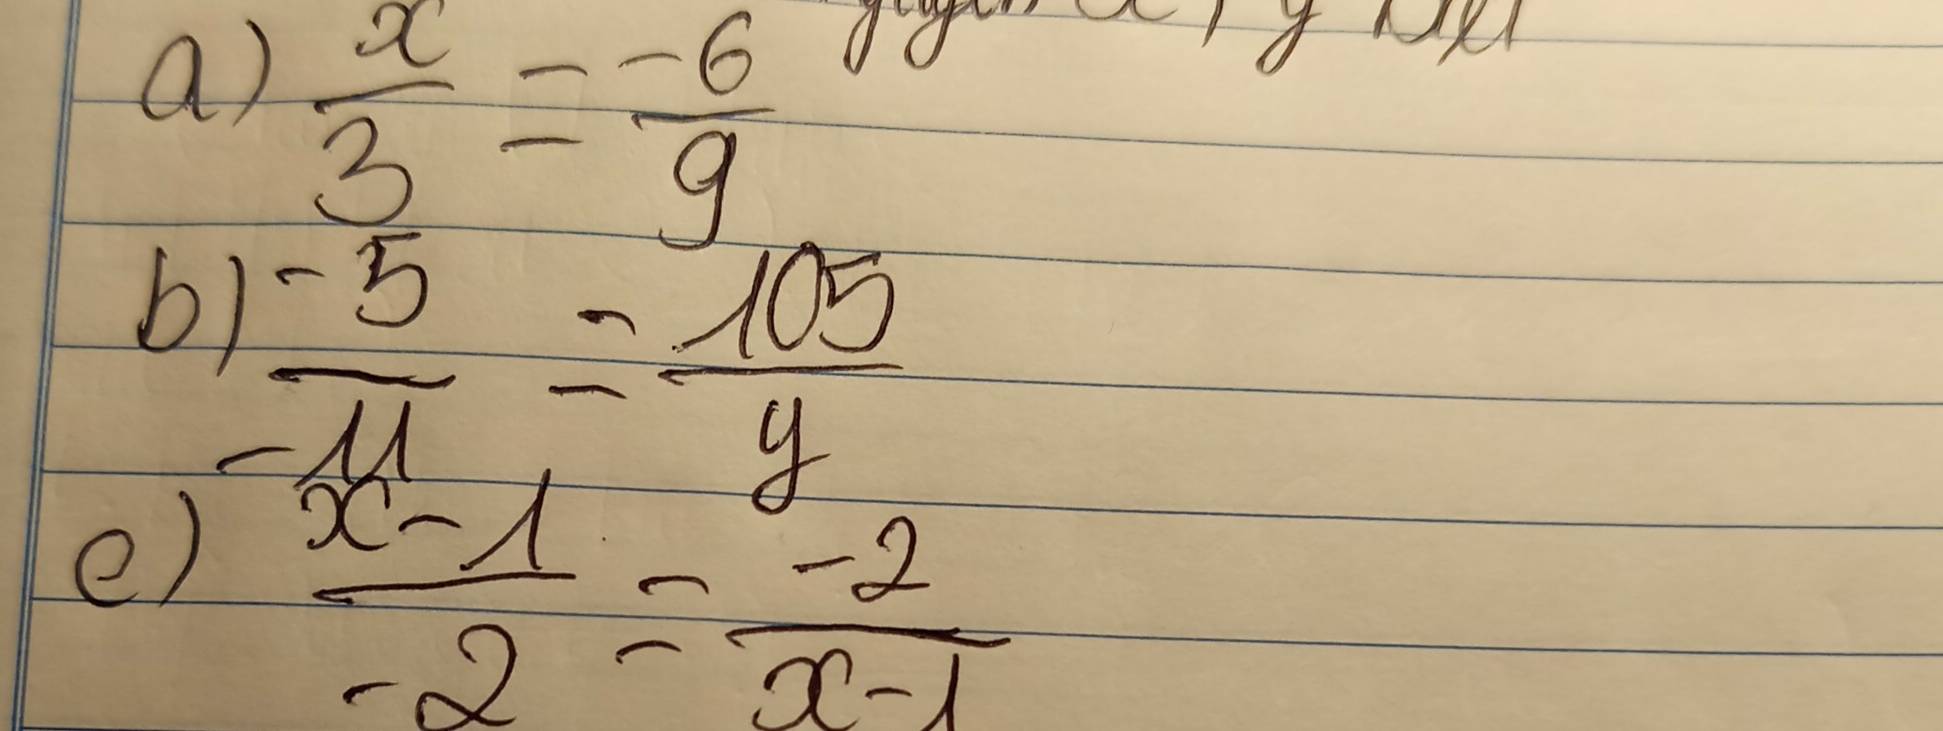 x, y
a) x/3 = -6/9
b) -5/-11 = 105/y
e) x-1/-2 = -2/x-1